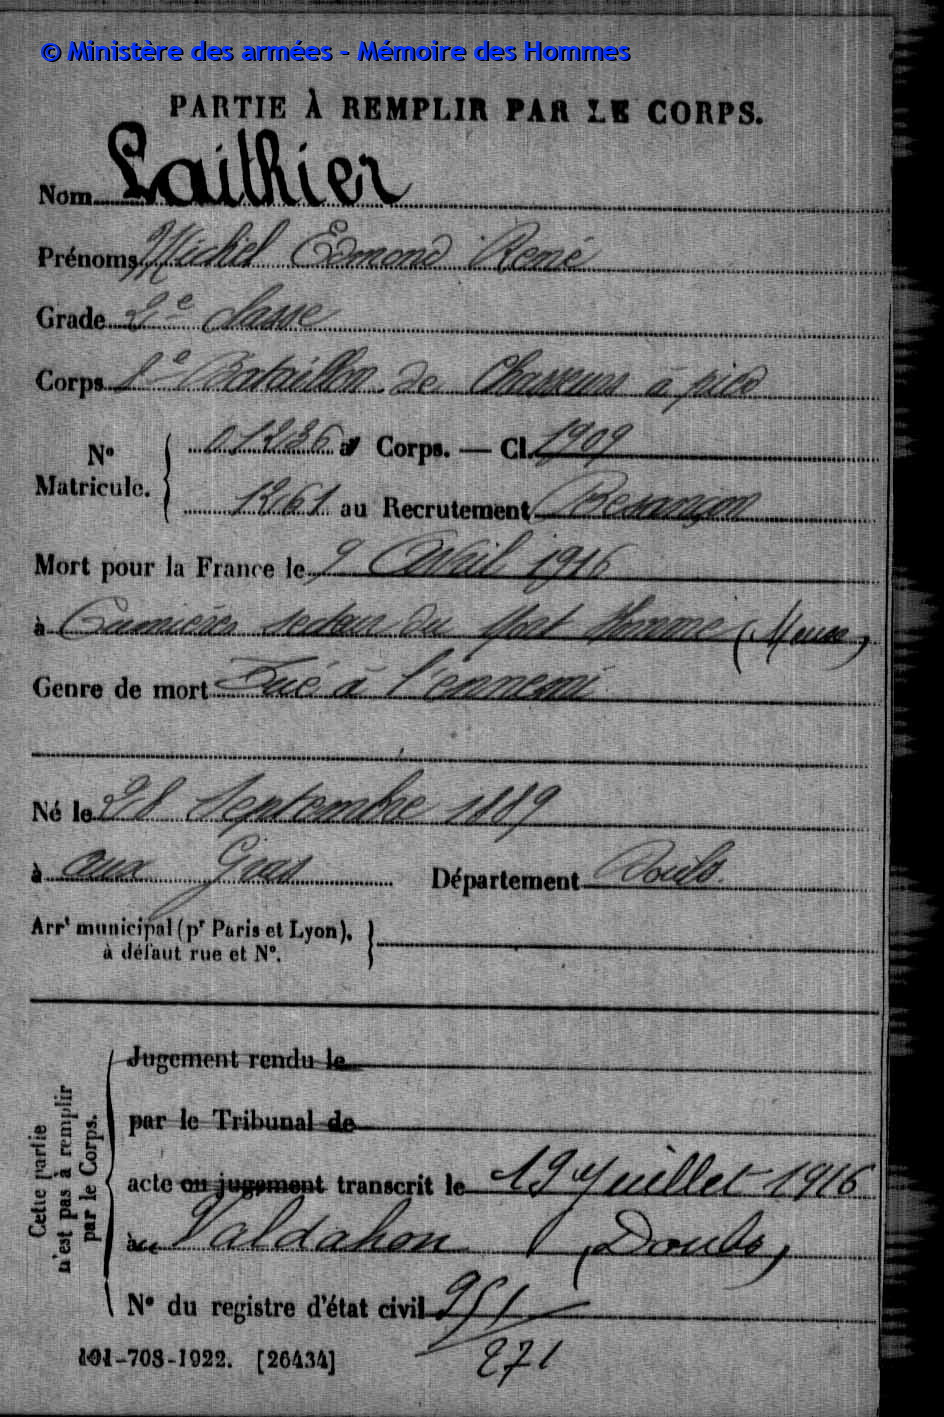 © Ministère des armées - Mémoire des Hommes
PARTIE À REMPLIR PAR LE CORPS.
Nom Laithier
Prénoms Michel Edmond René
Grade 2e classe
Corps 1e Bataillon de Chasseurs à pied
No Matricule. { 01236 au Corps. — Cl. 1909
1261 au Recrutement Besançon
Mort pour la France le 9 Avril 1916
à Cumières secteur du Mort Homme (Meuse)
Genre de mort Tué à l'ennemi
Né le 28 Septembre 1889
à aux Gras Département Doubs
Arrt municipal (pr Paris et Lyon), }
à défaut rue et No.
Cette partie n'est pas à remplir par le Corps.
Jugement rendu le
par le Tribunal de
acte ou jugement transcrit le 19 Juillet 1916
au Valdahon (Doubs)
No du registre d'état civil 951/
271
101-708-1922. [26434]